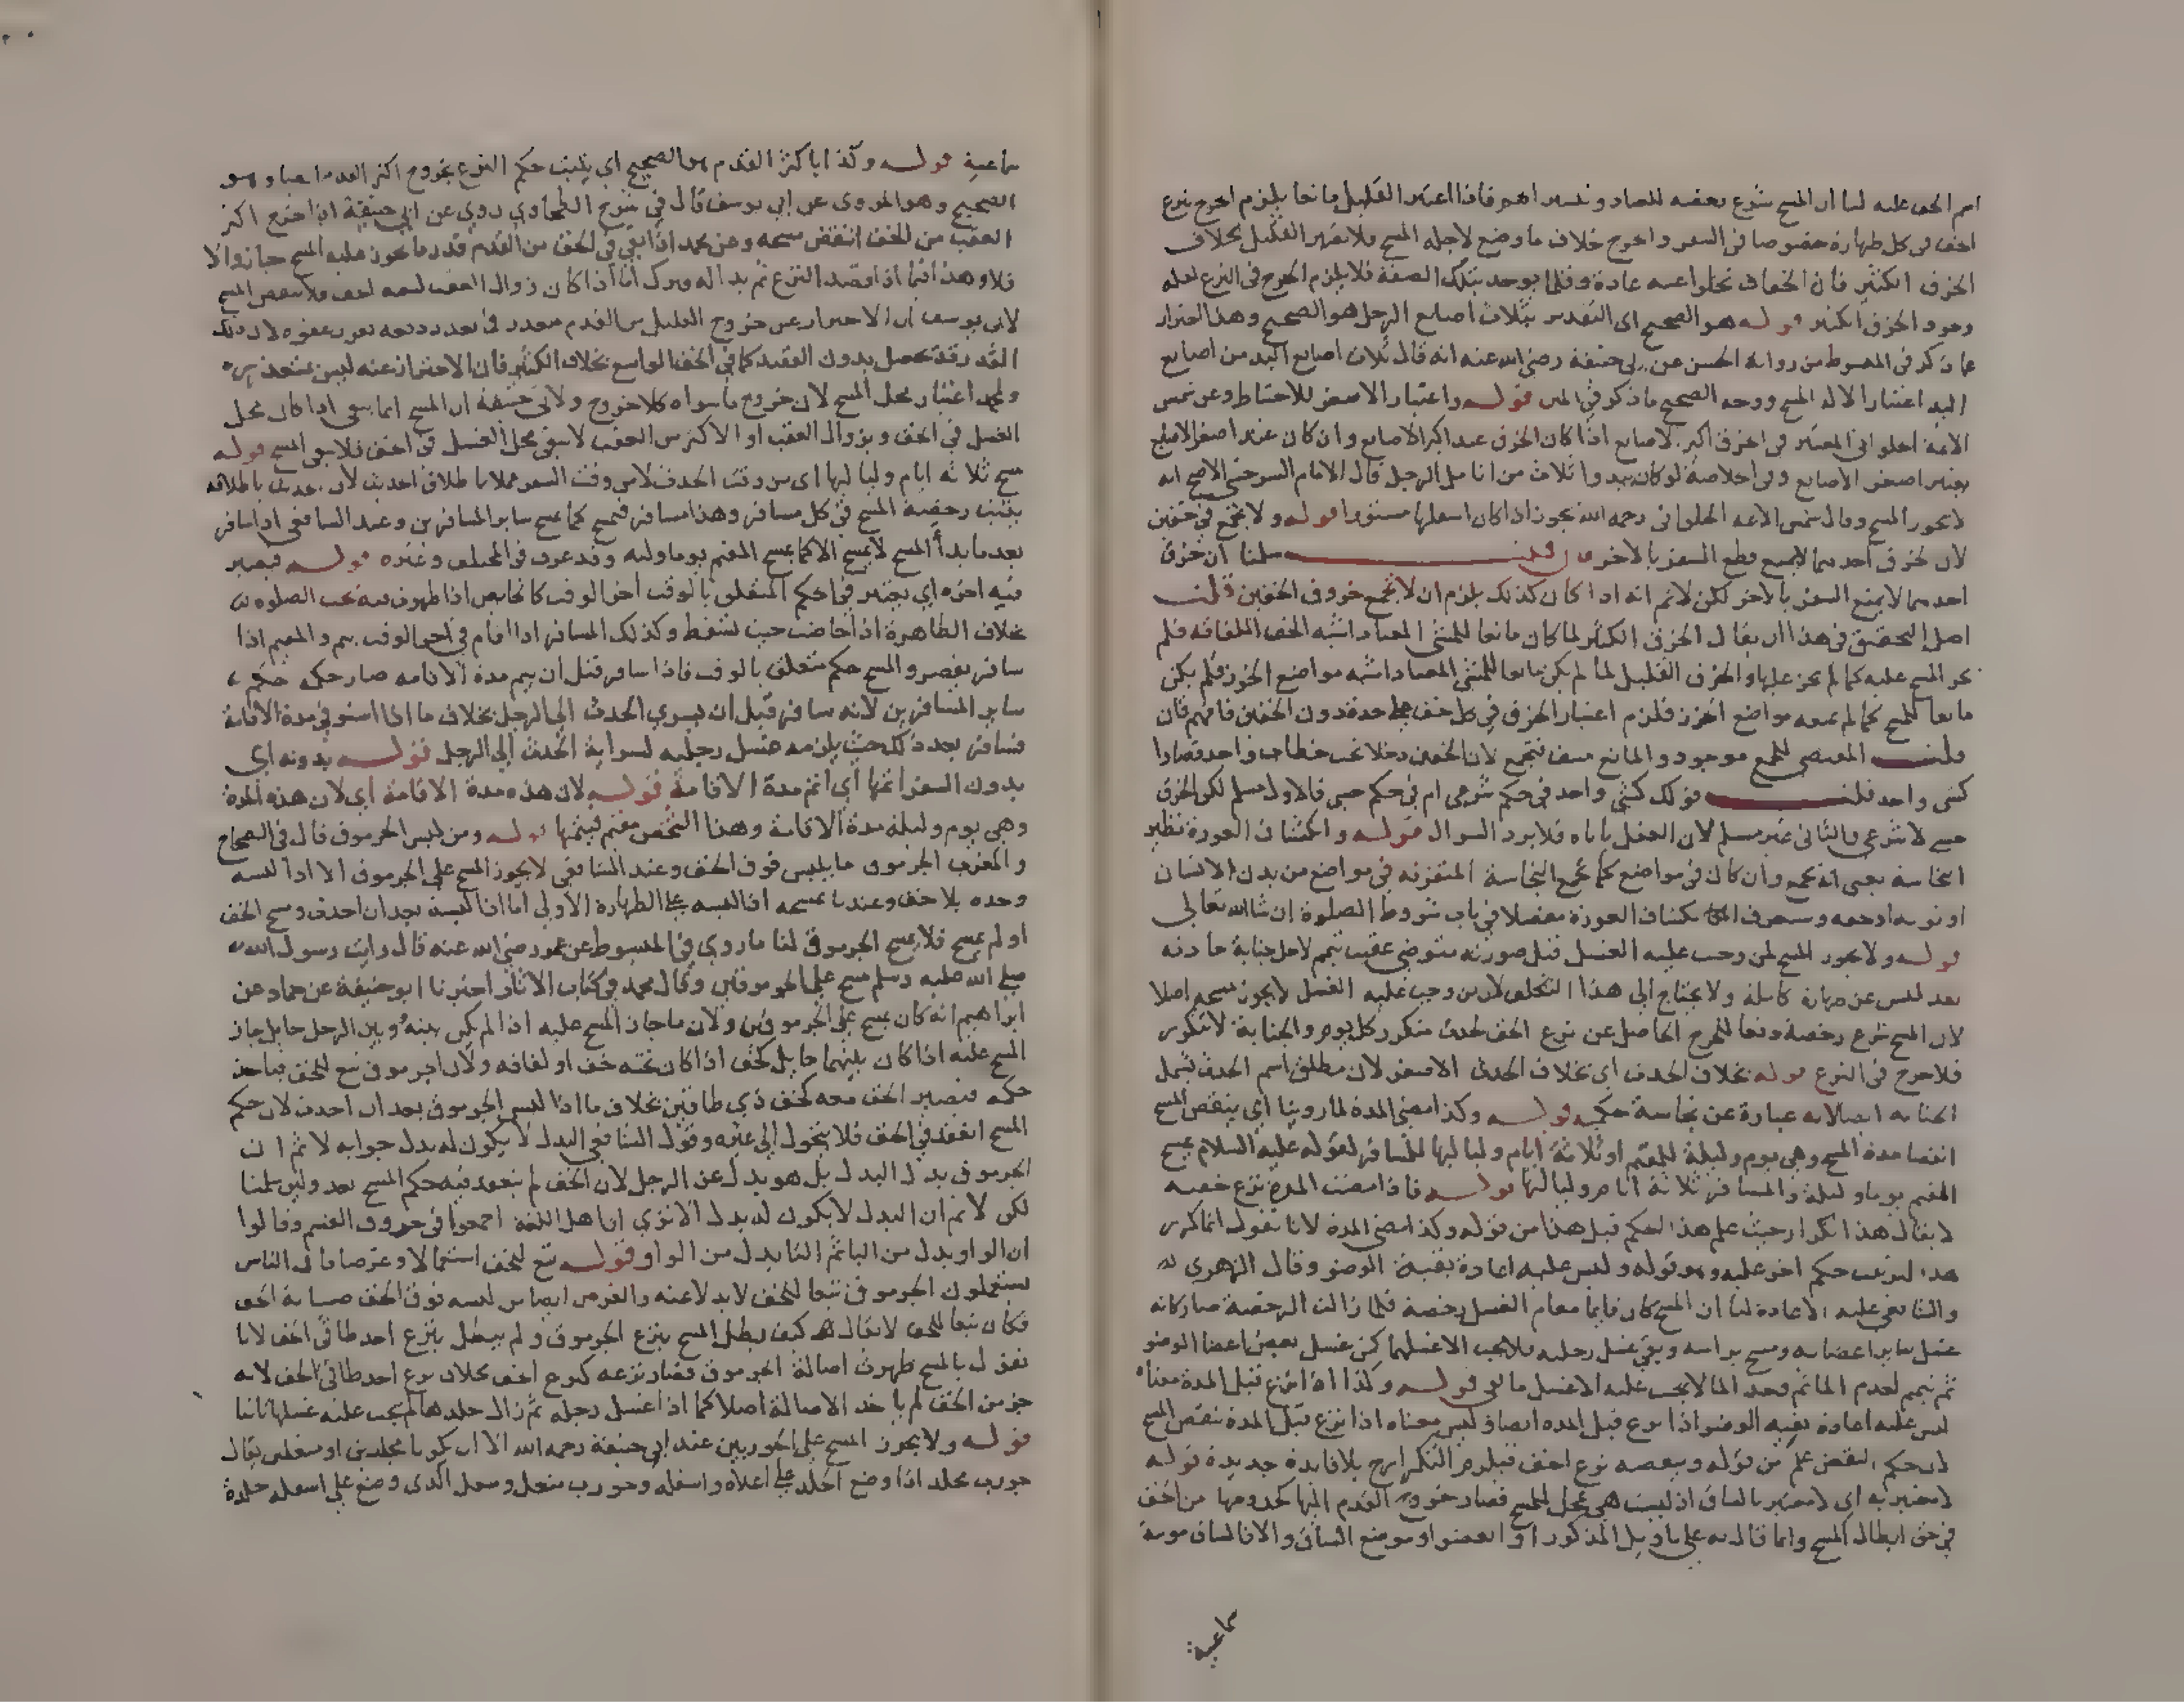 اسم الخف عليه لنا ان المسح شرع بعضه للمعتاد فاذا اعتبر القليل مانعا يلزم الحرج بنزع
الخف في كل طهارة خصوصا في السفر والحرج خلاف ما وضع لاجله المسح فلا يعتبر القليل بخلاف
الخرق الكثير فان الخفاف تخلوا عنه عادة وقلما يوجد بتلك الصفة فلا يلزم الحرج في النزع لعلة
وجود الخرق الكثير قوله هو الصحيح اي التقدير بثلاث اصابع الرجل هو الصحيح وهذا احتراز
عما ذكر في المبسوط من رواية الحسن عن ابي حنيفة رضي الله عنه انه قال ثلاث اصابع اليد من اصابع
اليد اعتبارا لالة المسح ووجه الصحيح ما ذكر في المتن قوله واعتبار الاصغر للاحتياط وعن شمس
الائمة الحلواني المعتبر في الخرق اكبر الاصابع اذا كان الخرق عند اكبر الاصابع وان كان عند اصغر الاصابع
يعتبر اصغر الاصابع وفي الخلاصة لو كان يبدوا ثلاث من انامل الرجل قال الامام السرخسي الاصح انه
لا يجوز المسح وقال شمس الائمة الحلواني رحمه الله يجوز اذا كان اسفلها مستورا قوله ولا يجمع في خفين
لان الخرق في احدهما لا يمنع قطع السفر بالاخر فان قلت سلمنا ان خرق
احدهما لا يمنع السفر بالاخر لكن لا نم انه اذا كان كذلك يلزم ان لا يجمع خروق الخفين قلت
اصل التحقيق في هذا ان يقال الخرق الكثير لما كان مانعا للمشي المعتاد اشبه الخف اللفافة فلم
يجز المسح عليه كما لم يجز عليها والخرق القليل لما لم يكن مانعا للمشي المعتاد اشبه مواضع الخرز فلم يكن
مانعا للمسح كما لم يمنعه مواضع الخرز فلزم اعتبار الخرق في كل خف على حدة دون الخفين فافهم فان
قلت المقتضي للجمع موجود والمانع منتف فيجمع لان الخفين دخلا تحت خطاب واحد فصارا
كشي واحد قلت قولك كشي واحد في حكم شرعي ام في حكم حسي فالاول مسلم لكن الخرق
حسي لا شرعي والثاني غير مسلم لان العقل ياباه فلا يرد السوال قوله وانكشاف العورة نظير
النجاسة يعني انه يجمع وان كان في مواضع كما تجمع النجاسة المتفرقة في مواضع من بدن الانسان
او ثوبه او خفه وسنعرف انكشاف العورة مفصلا في باب شروط الصلوة ان شاالله تعالى
قوله ولا يجوز المسح لمن وجب عليه الغسل قيل صورته متوضي عقيب تيمم لاجل جنابة حادثة
بعد لبس عن طهارة كاملة ولا يحتاج الى هذا التكلف لان من وجب عليه الغسل لا يجوز مسحه اصلا
لان المسح شرع رخصة دفعا للحرج الحاصل عن نزع الخف لحدث متكرر كل يوم والجنابة لا تتكرر
فلا حرج في النزع قوله بخلاف الحدث اي بخلاف الحدث الاصغر لان مطلق اسم الحدث يشمل
الجنابة لانه عبارة عن نجاسة حكمية قوله وكذا مضي المدة لما روينا اي ينقض المسح
انقضا مدة المسح وهي يوم وليلة للمقيم او ثلاثة ايام ولياليها للمسافر لقوله عليه السلام يمسح
المقيم يوما وليلة والمسافر ثلاثة ايام ولياليها قوله فاذا مضت المدة نزع خفيه
لا يقال هذا تكرار حيث علم هذا الحكم قبل هذا من قوله وكذا مضي المدة لانا نقول انما كرر
هذا ليرتب حكم اخر عليه وهو قوله وليس عليه اعادة بقية الوضو وقال الزهري
والشافعي عليه الاعادة لنا ان المسح كان قايما مقام الغسل رخصة فلما زالت الرخصة صار كانه
غسل ساير اعضايه ومسح براسه وبقي غسل رجليه فلا يجب الا غسلهما كمن غسل بعض اعضا الوضو
ثم تيمم لعدم الما ثم وجد الما لا يجب عليه الا غسل ما بقي قوله وكذا اذا نزع قبل المدة معناه
ليس عليه اعادة بقية الوضو اذا نزع قبل المدة ايضا وليس معناه اذا نزع قبل المدة ينقض المسح
لان حكم النقض علم من قوله وينقضه نزع الخف فيلزم التكرار بلا فايدة جديدة قوله
لا معتبر به اي لا معتبر بالساق اذ ليست هي محل المسح فصار خروج القدم اليها كخروجها من الخف
في حق ابطال المسح وانما قال به على تاويل المذكور او العضو او موضع الساق والا فالساق مونثة
سماعية
سماعية قوله وكذا باكثر القدم هو الصحيح اي يثبت حكم النزع بخروج اكثر القدم وهو
الصحيح وهو المروي عن ابي يوسف قال في شرح الطحاوي روي عن ابي حنيفة اذا خرج اكثر
العقب من الخف انتقض مسحه وعن محمد اذا بقي في الخف من القدم قدر ما يجوز عليه المسح جاز والا
فلا وهذا انما اذا قصد النزع ثم بدا له فترك اما اذا كان زوال العقب لسعة الخف فلا ينقض المسح
لابي يوسف ان الاحتراز عن خروج القليل من القدم متعذر لان ذلك
القدر قد يحصل بدون القصد كما في الخف الواسع بخلاف الكثير فان الاحتراز عنه ليس بمتعذر
ولمحمد اعتبار محل المسح لان خروج ما سواه كلا خروج ولابي حنيفة ان المسح انما يبقى اذا كان محل
الغسل في الخف وبزوال العقب او الاكثر من العقب لا يبقى محل الغسل في الخف فلا يبقى المسح قوله
مسح ثلاثة ايام ولياليها اي من وقت الحدث لا من وقت السفر عملا باطلاق الحديث لان الحديث باطلاقه
يثبت رخصة المسح في كل مسافر وهذا مسافر فيمسح كما يمسح ساير المسافرين وعند الشافعي اذا سافر
بعد ما بدأ المسح لا يمسح الا كما يمسح المقيم يوما وليلة وقد عرف في المختلف وغيره قوله فيعتبر
فيه اخره اي يعتبر في الحكم المتعلق بالوقت اخر الوقت كالحايض اذا طهرت فيه تجب الصلوة
بخلاف الطاهرة اذا حاضت حيث تسقط وكذلك المسافر اذا اقام في اخر الوقت يتم والمقيم اذا
سافر يقصر والمسح حكم متعلق بالوقت فاذا سافر قبل ان يتم مدة الاقامة صار حكمه حكم
ساير المسافرين لانه سافر قبل ان يسري الحدث الى الرجل بخلاف ما اذا استوفى مدة الاقامة
فسافر بعد ذلك حيث يلزمه غسل رجليه لسراية الحدث الى الرجل قوله بدونه اي
بدون السفر اتمها اي اتم مدة الاقامة قوله لان هذه مدة الاقامة اي لان هذه المدة
وهي يوم وليلة مدة الاقامة وهذا الشخص مقيم فيتمها قوله ومن لبس الجرموق قال في الصحاح
والمغرب الجرموق ما يلبس فوق الخف وعند الشافعي لا يجوز المسح على الجرموق الا اذا لبسه
وحده بلا خف وعندنا يمسحه اذا لبسه على الطهارة الاولى اما اذا لبسه بعد ان احدث ومسح الخف
او لم يمسح فلا يمسح الجرموق لنا ما روي في المبسوط عن عمر رضي الله عنه قال رايت رسول الله
صلى الله عليه وسلم مسح على الجرموقين وقال محمد في كتاب الاثار اخبرنا ابو حنيفة عن حماد عن
ابراهيم انه كان يمسح على الجرموقين ولان ما جاز المسح عليه اذا لم يكن بينه وبين الرجل حايل جاز
المسح عليه اذا كان بينهما حايل كخف اذا كان تحته خف او لفافة ولان الجرموق تبع للخف فياخذ
حكمه فيصير الخف معه كخف ذي طاقين بخلاف ما اذا لبس الجرموق بعد ان احدث لان حكم
المسح انعقد في الخف فلا يتحول الى غيره وقول الشافعي البدل لا يكون له بدل جوابه لا نم ان
الجرموق بدل البدل بل هو بدل عن الرجل لان الخف لم ينعقد فيه حكم المسح بعد ولين سلمنا
لكن لا نم ان البدل لا يكون له بدل الا ترى ان اهل اللغة اجمعوا في حروف القسم وقالوا
ان الواو بدل من البا ثم التا بدل من الواو قوله تبع للخف استعمالا وغرضا فان الناس
يستعملون الجرموق تبعا للخف لا بدلا عنه والغرض ايضا من لبسه فوق الخف صيانة الخف
فكان تبعا للخف لا يقال كيف يبطل المسح بنزع الجرموق ولم يبطل بنزع احد طاقي الخف لانا
نقول بالمسح ظهرت اصالة الجرموق فصار نزعه كنزع الخف بخلاف نزع احد طاقي الخف لانه
جزء من الخف لم ياخذ الاصالة اصلا كما اذا غسل رجله ثم زال جلدها لم يجب عليه غسلها ثانيا
قوله ولا يجوز المسح على الجوربين عند ابي حنيفة رحمه الله الا ان يكونا مجلدين او منعلين يقال
جورب مجلد اذا وضع الجلد على اعلاه واسفله وجورب منعل ومنعل الذي وضع على اسفله جلدة